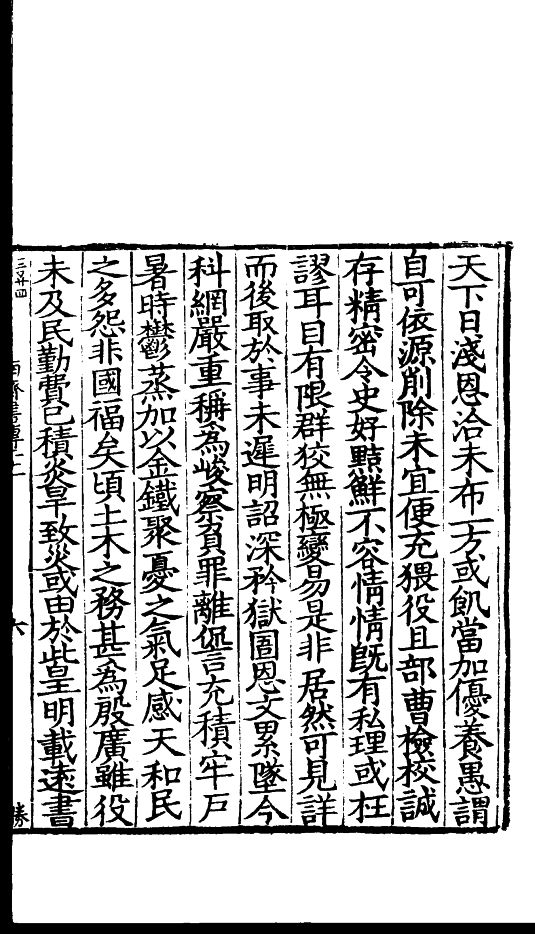 天下日淺恩洽未布一方或飢當加優養愚謂
自可依源削除未宜便充猥役且部曹檢校誠
存精密令史好黠鮮不容情情旣有私理或枉
謬耳目有限群狡無極變易是非居然可見詳
而後取於事未遲明詔深矜獄圄恩文累墜今
科網嚴重稱爲峻察負罪離𠎝充積牢戶
暑時鬱蒸加以金鐵聚憂之氣足感天和民
之多怨非國福矣頃土木之務甚爲殷廣雖役
未及民勤費已積炎旱致災或由於此皇明載遠書
三廿四
六